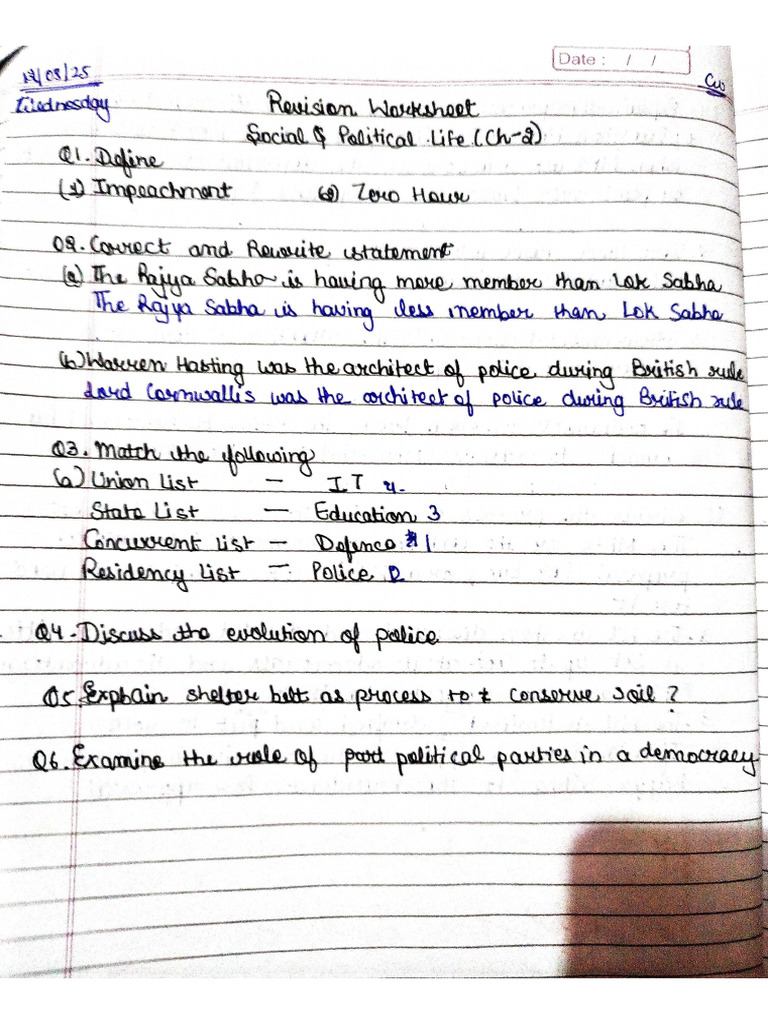 Date : / /
/08/25
Cw
Wednesday
Revision Worksheet
Social & Political Life (Ch-2)
Q1. Define
(1) Impeachment (2) Zero Hour
Q2. Correct and Rewrite statement
(a) The Rajya Sabha is having more member than Lok Sabha
The Rajya Sabha is having less member than Lok Sabha
(b) Warren Hasting was the architect of police during British rule
Lord Cornwallis was the architect of police during British rule
Q3. Match the following
(a) Union List - IT 4.
State List - Education 3
Concurrent List - Defence 1
Residency List - Police 2
Q4. Discuss the evolution of police
Q5. Explain shelter belt as process to conserve soil ?
Q6. Examine the role of part political parties in a democracy